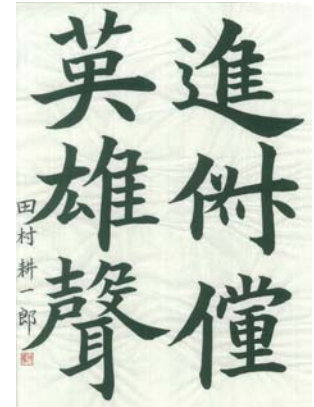 進
英雄聲
田村耕一郎